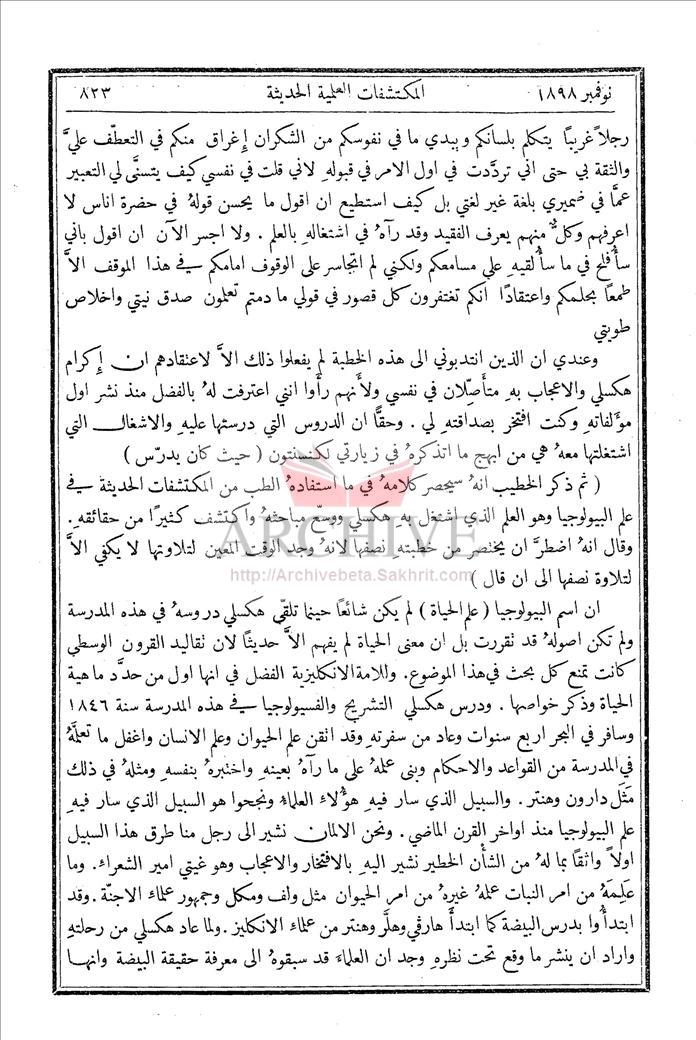 نوفمبر ١٨٩٨ المكتشفات العلمية الحديثة ٨٢٣
رجلاً غريبًا يتكلم بلسانكم ويبدي ما في نفوسكم من الشكران إِغراق منكم في التعطّف عليَّ
والثقة بي حتى اني تردَّدت في اول الامر في قبولهِ لاني قلت في نفسي كيف يتسنَّى لي التعبير
عمَّا في ضميري بلغة غير لغتي بل كيف استطيع ان اقول ما يحسن قولهُ في حضرة اناس لا
اعرفهم وكلٌّ منهم يعرف الفقيد وقد رآهُ في اشتغاله بالعلم . ولا اجسر الآن ان اقول باني
سأُفلح في ما سأُلقيهِ على مسامعكم ولكني لم اتجاسر على الوقوف امامكم في هذا الموقف الاَّ
طمعًا بحلمكم واعتقادًا انكم تغتفرون كل قصور في قولي ما دمتم تعلمون صدق نيتي واخلاص
طويتي
وعندي ان الذين انتدبوني الى هذه الخطبة لم يفعلوا ذلك الاَّ لاعتقادهم ان إِكرام
هكسلي والاعجاب بهِ متأَصّلان في نفسي ولأَنهم رأَوا انني اعترفت لهُ بالفضل منذ نشر اول
مؤَلفاتهِ وكنت افتخر بصداقتهِ لي . وحقًّا ان الدروس التي درستها عليهِ والاشغال التي
اشتغلتها معهُ هي من ابهج ما اتذكرهُ في زيارتي لكنسنتون ( حيث كان يدرّس )
( ثم ذكر الخطيب انهُ سيحصر كلامهُ في ما استفادهُ الطب من المكتشفات الحديثة في
علم البيولوجيا وهو العلم الذي اشتغل بهِ هكسلي ووسّع مباحثهُ واكتشف كثيرًا من حقائقهِ .
ARCHIVE
وقال انهُ اضطرَّ ان يختصر من خطبتهِ نصفها لانهُ وجد الوقت المعين لتلاوتها لا يكفي الاَّ
http://Archivebeta.Sakhrit.com
لتلاوة نصفها الى ان قال )
ان اسم البيولوجيا ( علم الحياة ) لم يكن شائعًا حينما تلقَّى هكسلي دروسهُ في هذه المدرسة
ولم تكن اصولهُ قد تقررت بل ان معنى الحياة لم يفهم الاَّ حديثًا لان تقاليد القرون الوسطي
كانت تمنع كل بحث في هذا الموضوع . وللامة الانكليزية الفضل في انها اول من حدَّد ماهية
الحياة وذكر خواصها . ودرس هكسلي التشريح والفسيولوجيا في هذه المدرسة سنة ١٨٤٦
وسافر في البحر اربع سنوات وعاد من سفرتهِ وقد اتقن علم الحيوان وعلم الانسان واغفل ما تعلَّمهُ
في المدرسة من القواعد والاحكام وبنى علمهُ على ما رآهُ بعينهِ واختبرهُ بنفسهِ ومثلهُ في ذلك
مَثَل دارون وهنتر . والسبيل الذي سار فيهِ هؤُلاء العلماءُ ونجحوا هو السبيل الذي سار فيهِ
علم البيولوجيا منذ اواخر القرن الماضي . ونحن الالمان نشير الى رجل منا طرق هذا السبيل
اولاً واثقًا بما لهُ من الشأْن الخطير نشير اليهِ بالافتخار والاعجاب وهو غيتي امير الشعراء . وما
عَلِمَهُ من امر النبات عملهُ غيرهُ من امر الحيوان مثل ولف ومكل وجمهور علماء الاجنّة . وقد
ابتدأُوا بدرس البيضة كما ابتدأَ هارڤي وهلَّر وهنتر من علماء الانكليز . ولما عاد هكسلي من رحلتهِ
واراد ان ينشر ما وقع تحت نظرهِ وجد ان العلماء قد سبقوهُ الى معرفة حقيقة البيضة وانها